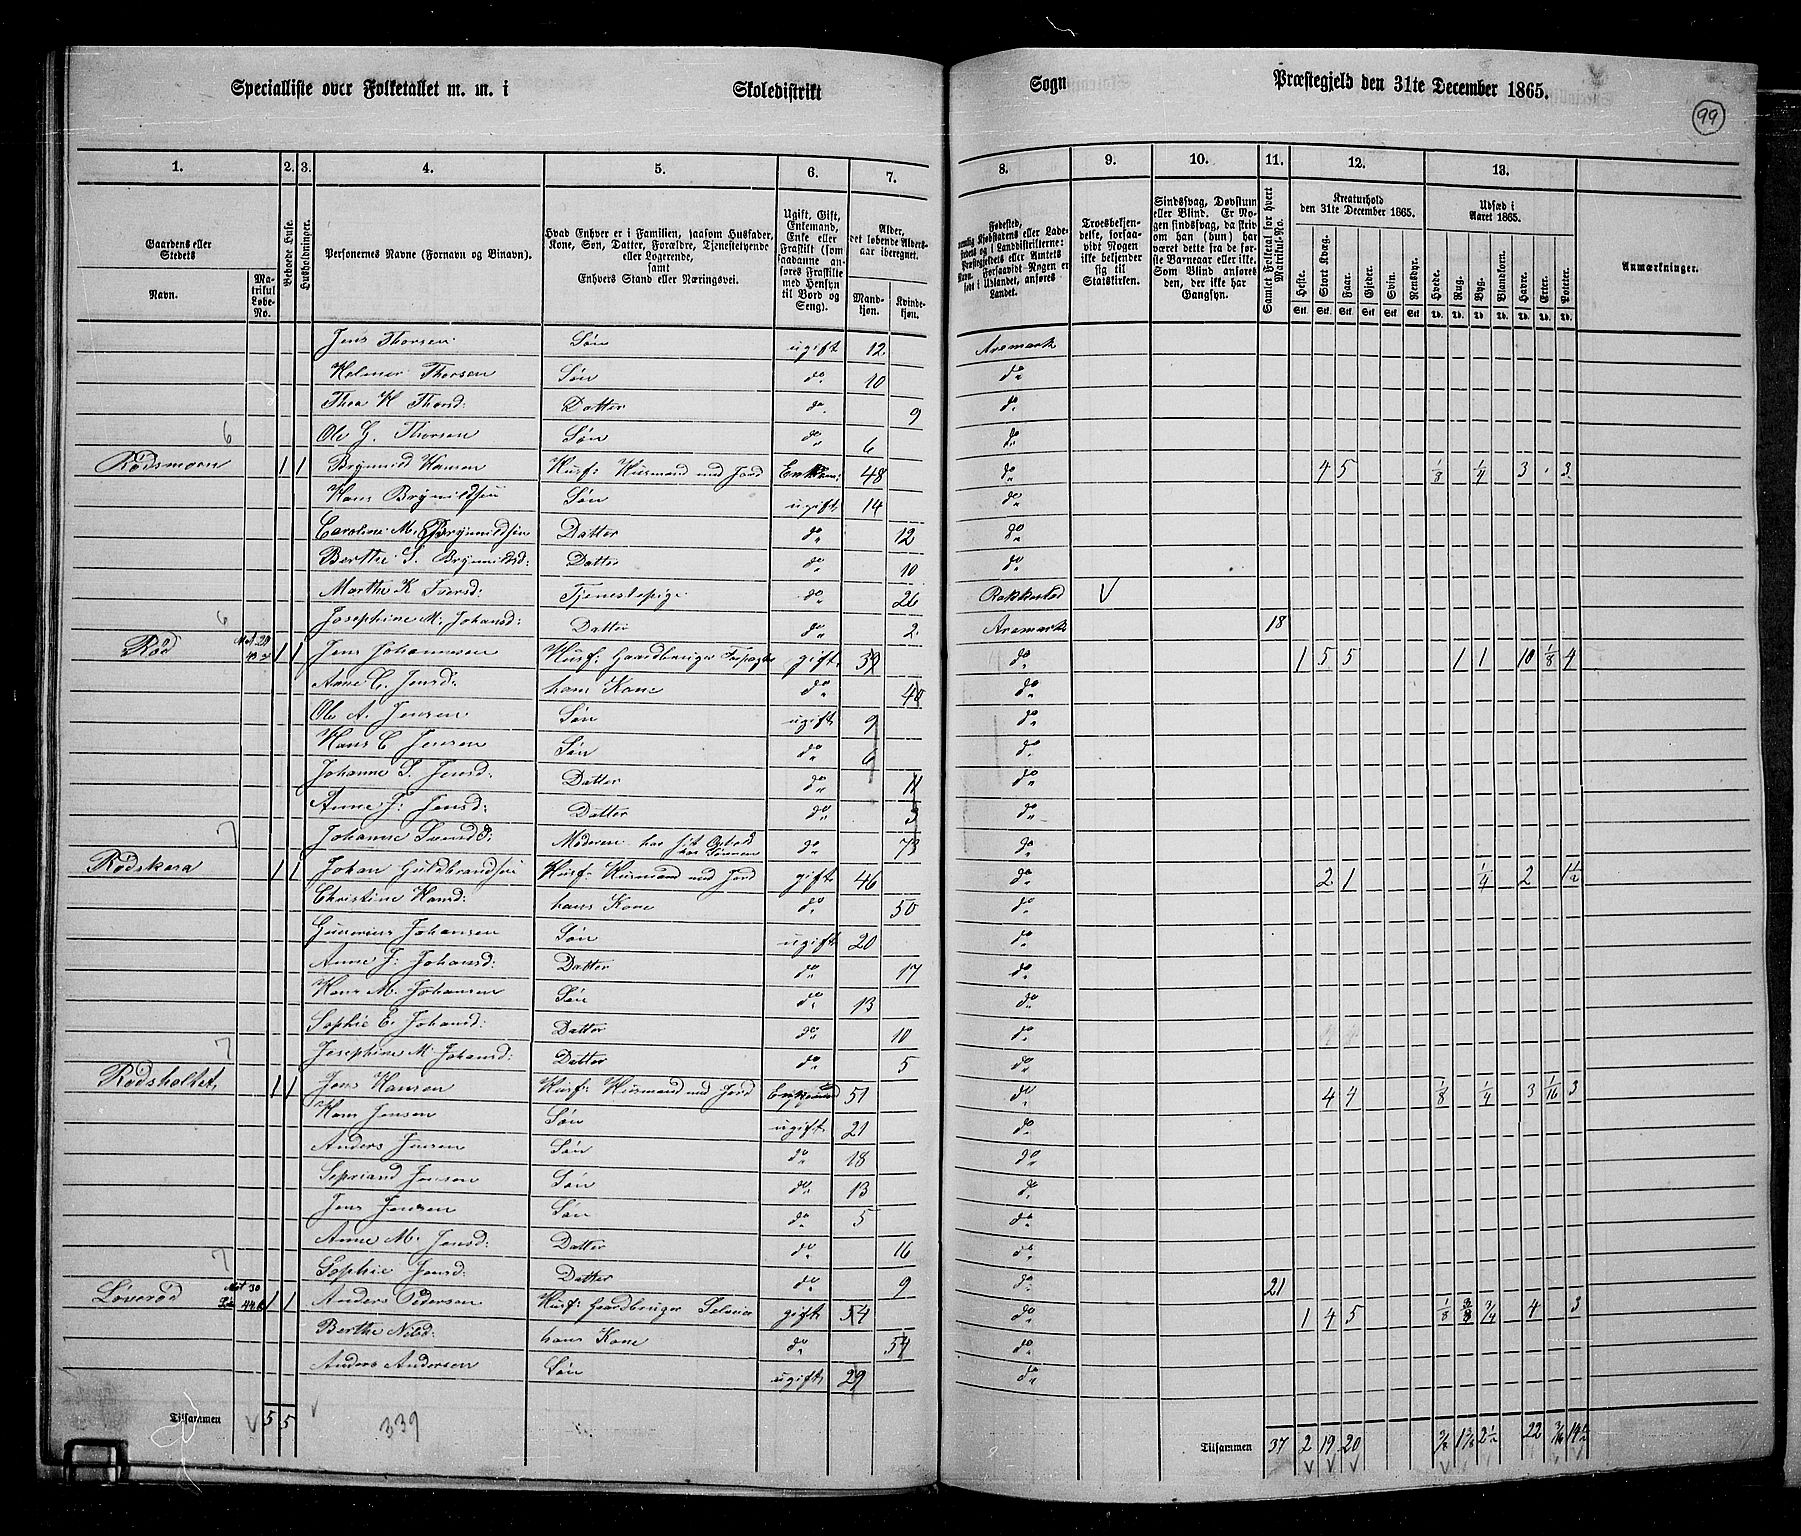 Specialliste over Folketallet m. m. i Skoledistrikt Sogn Præstegjeld den 31te December 1865.
99
1. 2. 3. 4. 5. 6. 7. 8. 9. 10. 11. 12. 13.
Gaardens eller Stedets Navn. Matrikul Løbe-No. Beboede Huse. Husholdninger. Personernes Navne (Fornavn og Binavn). Hvad Enhver er i Familien, saasom Husfader, Kone, Søn, Datter, Forældre, Tjenestetyende eller Logerende, samt Enhvers Stand eller Næringsvei. Ugift, Gift, Enkemand, Enke eller Fraskilt (som saadanne anføres Fraskilte med Hensyn til Bord og Seng). Alder, det løbende Aldersaar iberegnet. Mandkjøn. Kvindekjøn.
Fødested, Troesbekjendelse, forsaavidt Nogen ikke bekjender sig til Statskirken. Sindssvag, Døvstum eller Blind. Er Nogen sindssvag, da skriv om han (hun) har været dette fra de første Barneaar eller ikke. Som Blind anføres den, der ikke har Gangsyn. Samlet Folketal for hvert Matrikul-No. Kreaturhold den 31te December 1865. Heste. Stort Kvæg. Faar. Gjeder. Svin. Rensdyr. Udsæd i Aaret 1865. Hvede. Rug. Byg. Blandkorn. Havre. Erter. Poteter. Anmærkninger.
Jens Thorsen Søn ugift 12 Aremark
Helmer Thorsen Søn do 10 do
Thea K Thorsd: Datter do 9 do
6 Ole G. Thorsen Søn do 6 do
Rødsmoen 1 1 Brynild Hansen Husf: Husmand med Jord Enkem: 48 do 4 5 1/8 1/4 3 3
Hans Brynildsen Søn ugift 14 do
Caroline M. Brynildsen Datter do 12 do
Berthe S. Brynildsd: Datter do 10 do
Marthe K Iversd: Tjenestepige do 26 Rakkestad V
6 Josephine M. Johansd: Datter do 2 Aremark 18
Rød 1 1 Jens Johannesen Husf: Gaardbruger gift 39 do 1 5 5 1 1 10 1/8 4
Anne C. Jensd: hans Kone do 40 do
Ole A. Jensen Søn ugift 9 do
Hans C Jensen Søn do 6 do
Johanne S. Jensd: Datter do 11 do
Anne J: Jensd: Datter do 3 do
7 Johanne Svensd: Moderen har sit Ophold hos Sønnen do 73 do
Rødskara 1 1 Johan Guldbrandsen Husf: Husmand med Jord gift 46 do 2 1 1/4 2 1 1/2
Christine Hansd: hans Kone do 50 do
Gunerius Johansen Søn ugift 20 do
Anne J: Johansd: Datter do 17 do
Hans M. Johansen Søn do 13 do
Sophie E. Johansd: Datter do 10 do
7 Josephine M. Johansd: Datter do 5 do
Rødsholtet, 1 1 Jens Hansen Husf: Husmand med Jord Enkemand 51 do 4 4 1/8 1/4 3 1/16 3
Hans Jensen Søn ugift 21 do
Anders Jensen Søn do 18 do
Jensen Søn do 13 do
Jens Jensen Søn do 5 do
Anne M. Jensd: Datter do 16 do
7 Sophie Jensd: Datter do 9 do 21
Løverød Mat 30 1 1 Anders Pedersen Husf: Gaardbruger Selveier gift 54 do 1 4 5 1/8 3/8 3/4 4 3
Berthe Nilsd: hans Kone do 54 do
Anders Andersen Søn ugift 29 do
Tilsammen 5 5 339
Tilsammen 37 2 19 20 22 14 1/2